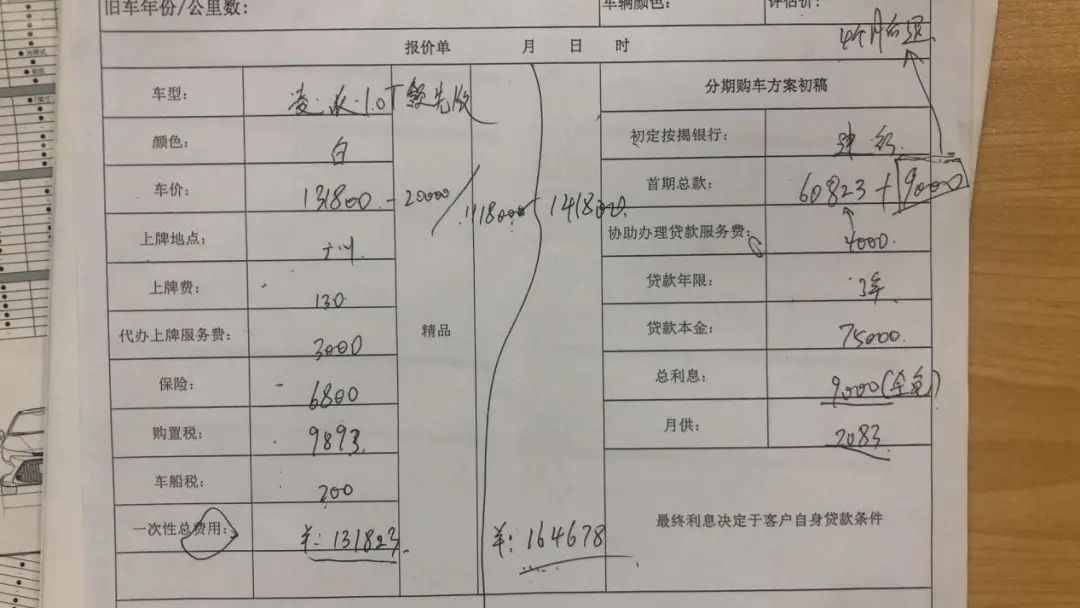 旧车年份/公里数:
车辆颜色:
评估价:
4个月后退
报价单 月 日 时
车型: 凌派1.0T 领先版
颜色: 白
车价: 131800 - 20000 111800 141800
上牌地点: 广州
上牌费: 130
代办上牌服务费: 3000
精品
保险: 6800
购置税: 9893
车船税: 200
一次性总费用: 羊: 131823
羊: 164678
分期购车方案初稿
初定按揭银行: 建行
首期总款: 60823 + 9000
协助办理贷款服务费: 4000
贷款年限: 3年
贷款本金: 75000
总利息: 9000(全免)
月供: 2083
最终利息决定于客户自身贷款条件